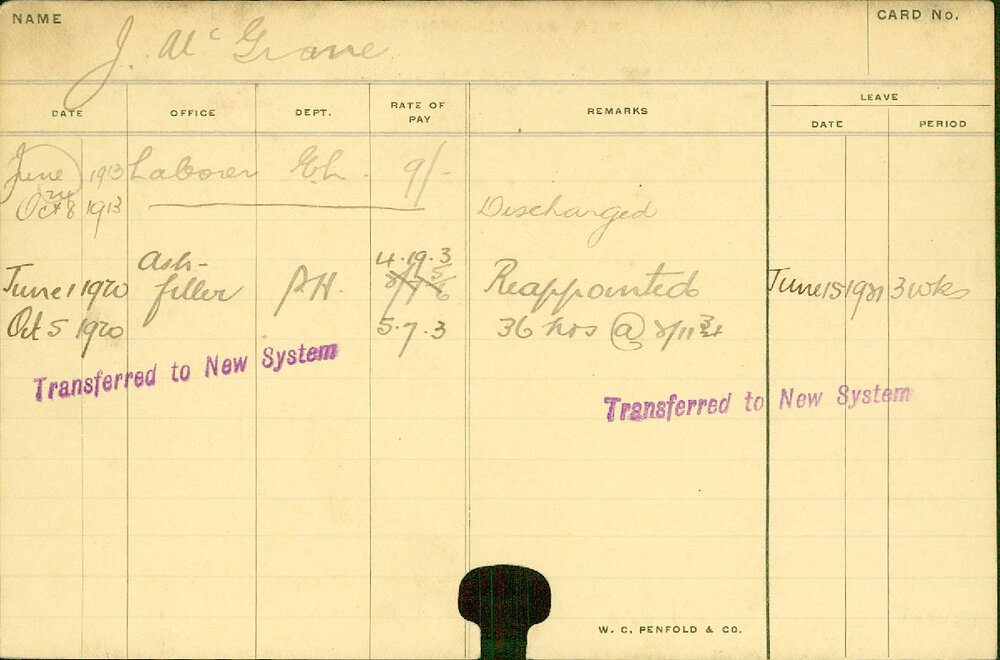 NAME
CARD NO.
J. McGrane
DATE OFFICE DEPT. RATE OF PAY REMARKS LEAVE
DATE PERIOD
June 24 1913 Laborer E.L. 9/-
Oct 8 1913 Discharged
June 1 1920 Ash-filler P.H. 4.19.3 Reappointed June 15 1921 3 wks
Oct 5 1920 5.7.3 36 hrs @ 2/11 3/4
Transferred to New System
Transferred to New System
W. C. PENFOLD & CO.